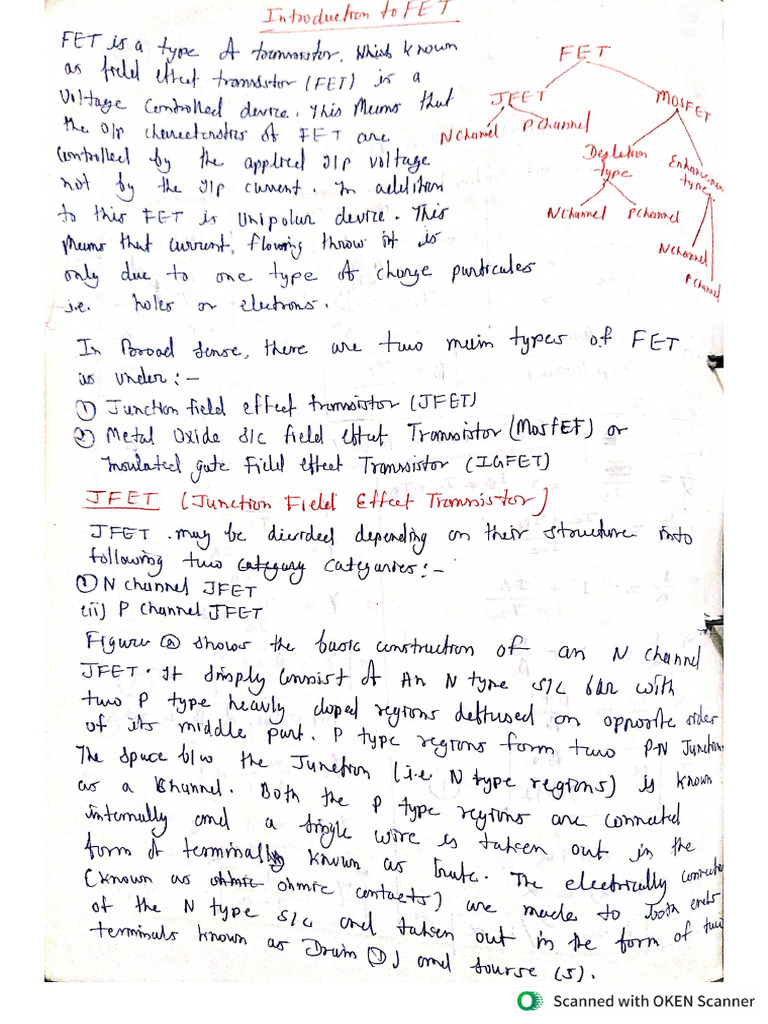 Introduction to FET
FET is a type of transistor. Which known
as field effect transistor (FET) is a
Voltage Controlled device. This Means that
the O/p characteristics of FET are
Controlled by the applied I/P voltage
not by the I/P current. In addition
to this FET is Unipolar device. This
Means that current, flowing throw it is
only due to one type of charge particules
i.e. holes or electrons.
FET
JFET
MOSFET
N Channel
P Channel
Depletion
type
Enhancement
type
N Channel
P Channel
N Channel
P Channel
In Broad sense, there are two main types of FET
is under:-
① Junction field effect transistor (JFET)
② Metal Oxide S/C field effect Transistor (MosFET) or
Insulated gate Field effect Transistor (IGFET)
JFET (Junction Field Effect Transistor)
JFET may be divided depending on their structure into
following two category categories:-
① N channel JFET
(ii) P channel JFET
Figure ⓐ shows the basic construction of an N channel
JFET. It simply consist of An N type S/C bar with
two P type heavly doped regions deffused on opposite sides
of its middle part. P type regions form two P-N Junction.
The space b/w the Junction (i.e. N type regions) is known
as a Channel. Both the P type regions are connected
internally and a single wire is taken out in the
form of terminal known as Gate. The electrically connection
(known as ohmic ohmic contacts) are made to both ends
of the N type S/C and taken out in the form of two
terminals known as Drain (D) and source (S).
Scanned with OKEN Scanner